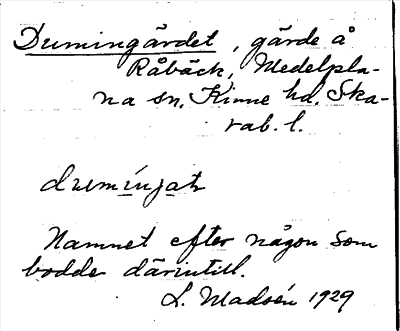 Drumingärdet, gärde å
Råbäck, Medelpla-
na sn, Kinne hd. Ska-
rab. l.
drumínjat
Namnet efter någon som
bodde därintill.
L. Madsén 1929